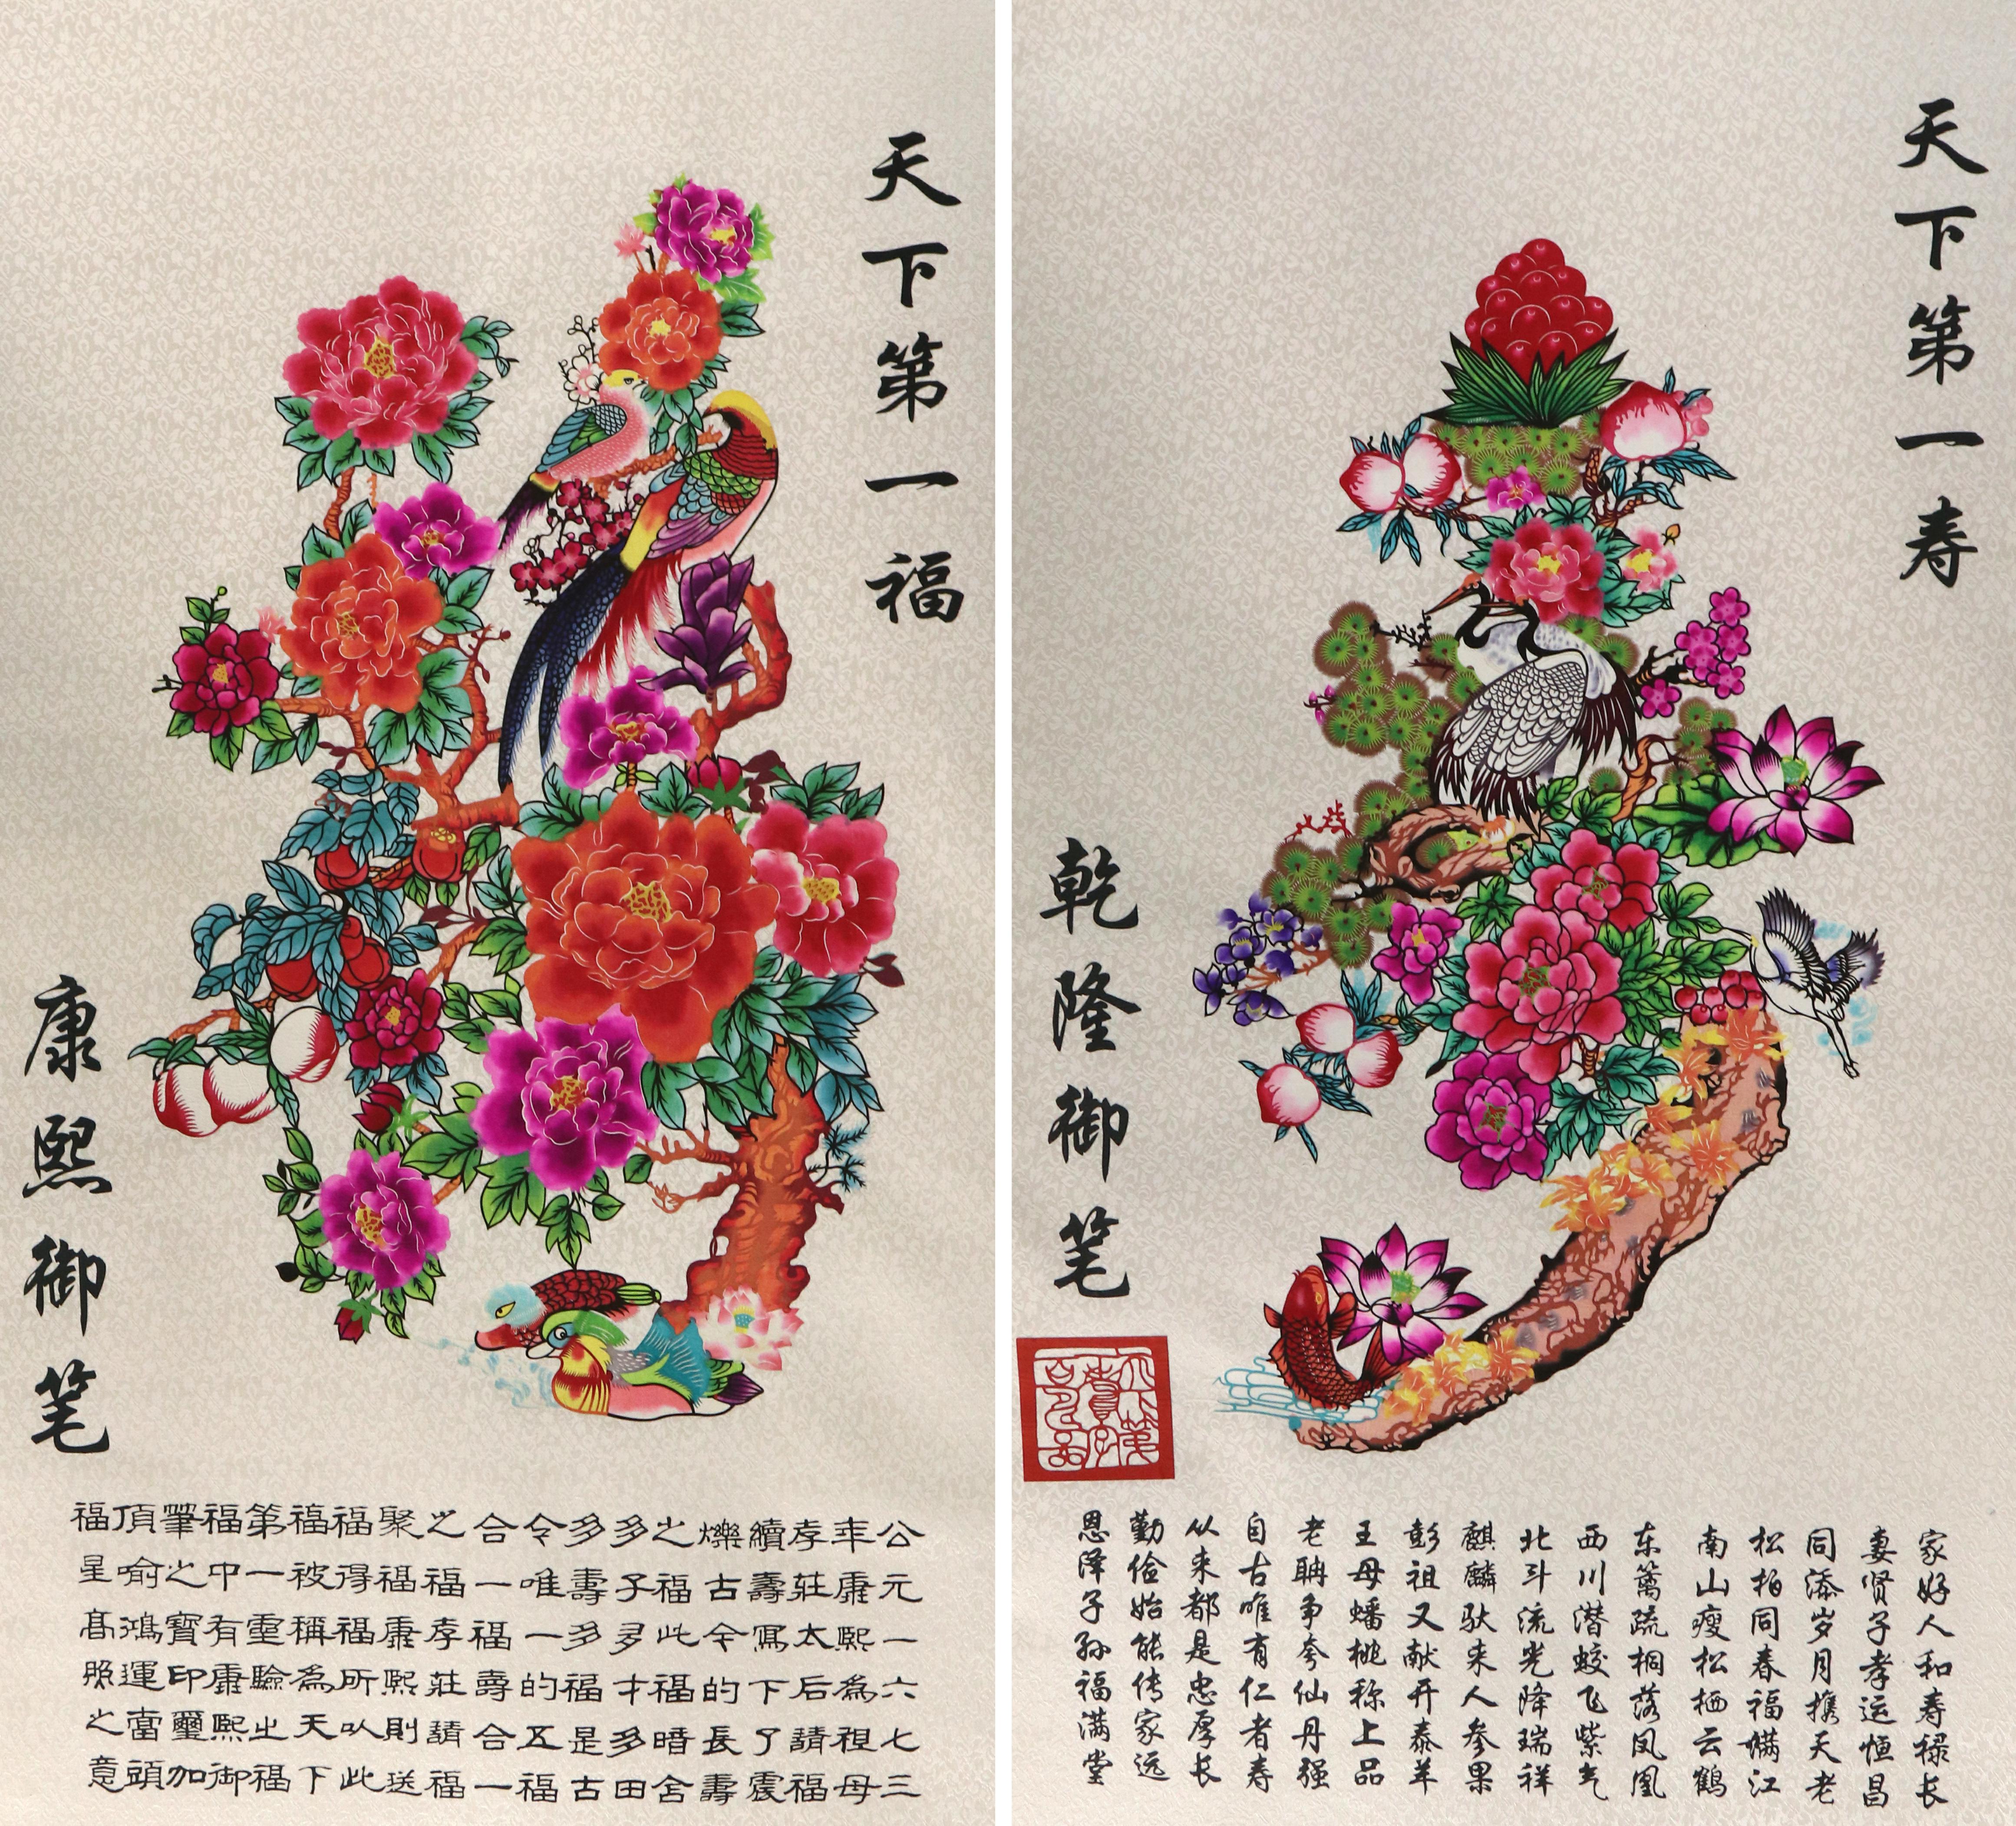 天下第一福
康熙御笔
公元一六七三
年康熙為祖母
孝莊太后請福
續壽寫下了震
爍古今的長壽
之福此福暗含
多子多才多田
多壽多福是古
今唯一的五福
合一福壽合一
之福孝莊請福
聚福康熙則送
福得福所以此
福被稱為天下
第一靈驗之福
福中有康熙御
筆之寶印璽加
頂喻鴻運當頭
福星高照之意
天下第一寿
乾隆御笔
家好人和寿禄长
妻贤子孝运恒昌
同添岁月携天老
松柏同春福满江
南山瘦松栖云鹤
东篱疏桐落凤凰
西川潜蛟飞紫气
北斗流光降瑞祥
麒麟驮来人参果
彭祖又献开泰羊
王母蟠桃称上品
老聃争夸仙丹强
自古唯有仁者寿
从来都是忠厚长
勤俭始能传家远
恩泽子孙福满堂